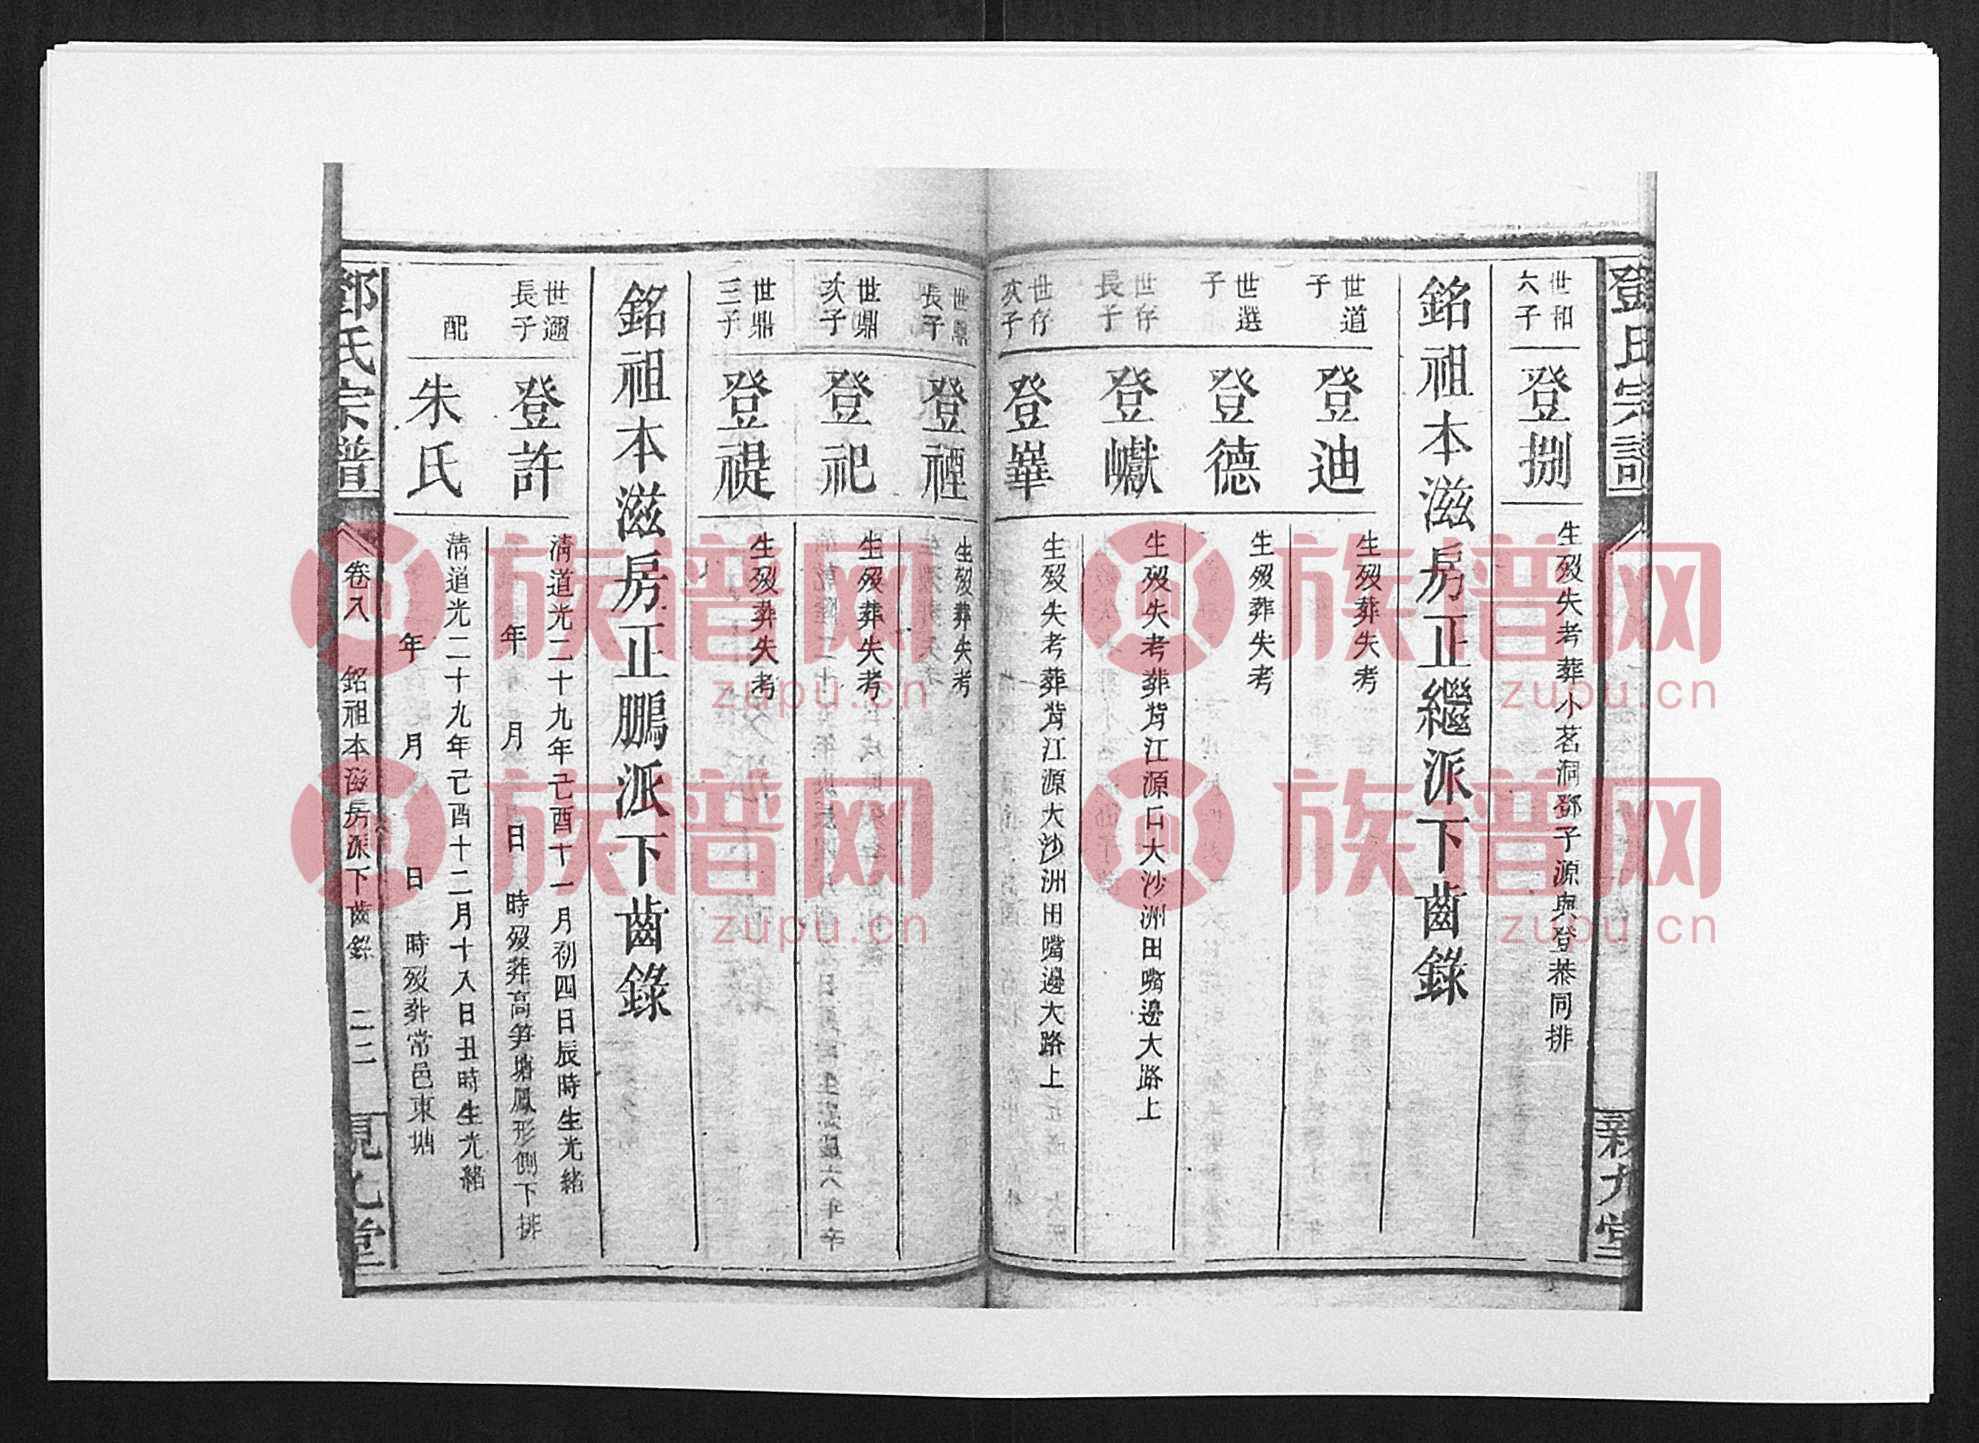 鄧氏宗譜
親九堂
世和六子
登捌
生殁失考葬小茗洞鄧子源與登恭同排
銘祖本滋房正繼派下齒錄
世道子
登迪
生殁葬失考
世選子
登德
生殁葬失考
世存長子
登巘
生殁失考葬背江源口大沙洲田嘴邊大路上
世存次子
登崋
生殁失考葬背江源大沙洲田嘴邊大路上
世鼎長子
登禋
生殁葬失考
世鼎次子
登祀
生殁葬失考
世鼎三子
登禔
生殁葬失考
銘祖本滋房正鵬派下齒錄
世邇長子
登許
清道光二十九年己酉十一月初四日辰時生光緒
年 月 日 時殁葬高笋塘鳳形側下排
配
朱氏
清道光二十九年己酉十二月十八日丑時生光緒
年 月 日 時殁葬常邑東㘭
鄧氏宗譜
卷八 銘祖本滋房派下齒錄 二二
親九堂
族谱网
zupu.cn
族谱网
zupu.cn
族谱网
zupu.cn
族谱网
zupu.cn